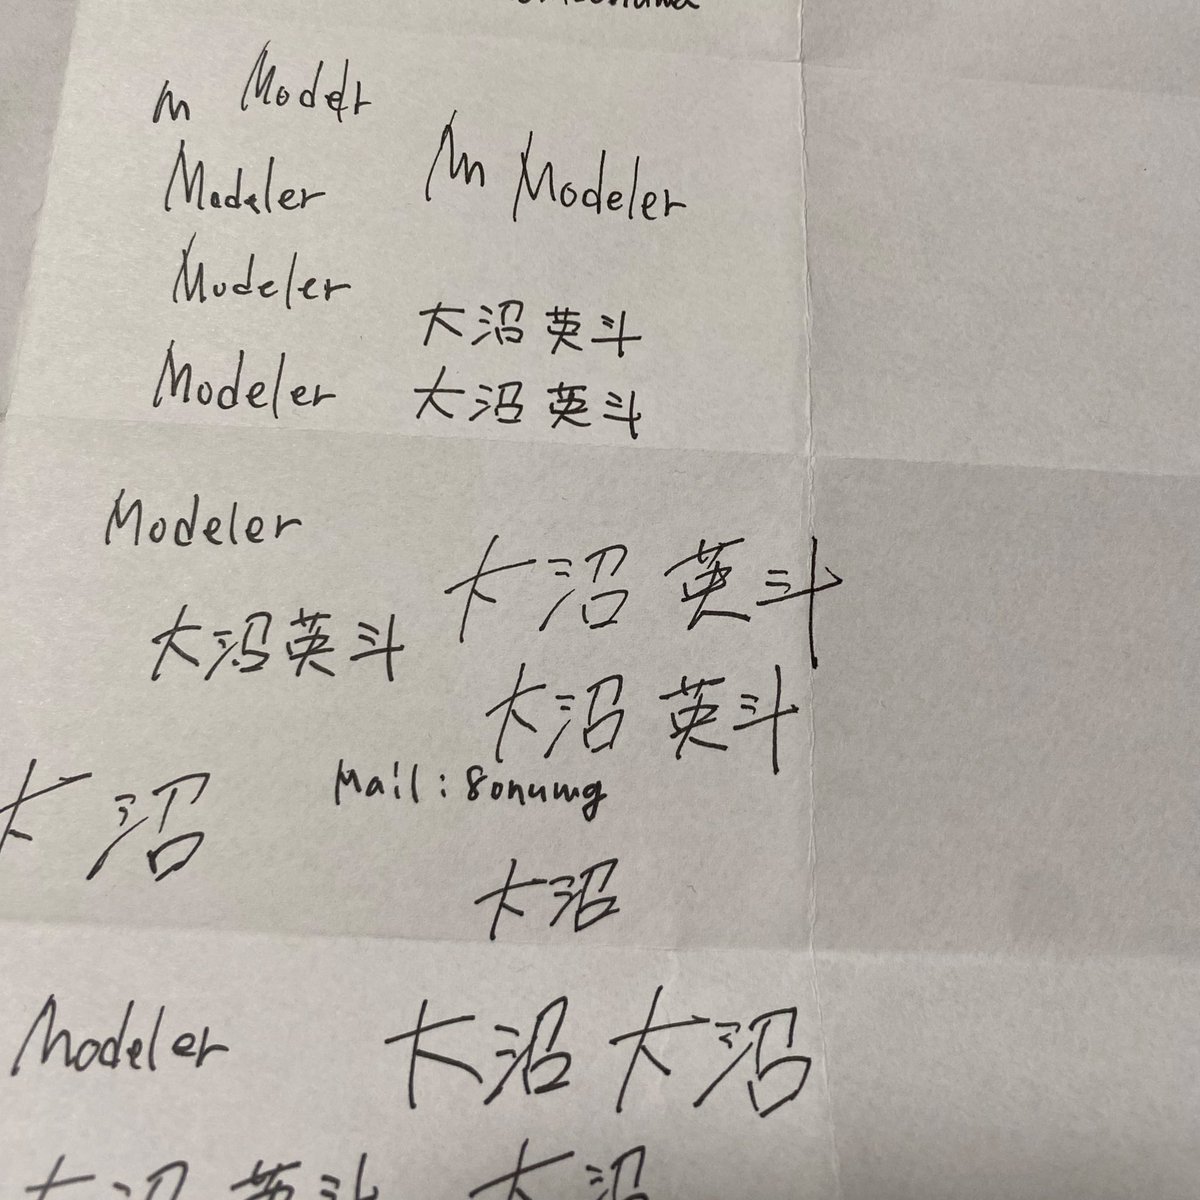 m Modelr
Modeler
m Modeler
Modeler
大沼 英斗
Modeler
大沼 英斗
Modeler
大沼 英斗
大沼英斗
大沼 英斗
Mail : 8onumg
大沼
大沼
Modeler
大沼 大沼
大沼 英斗 大沼